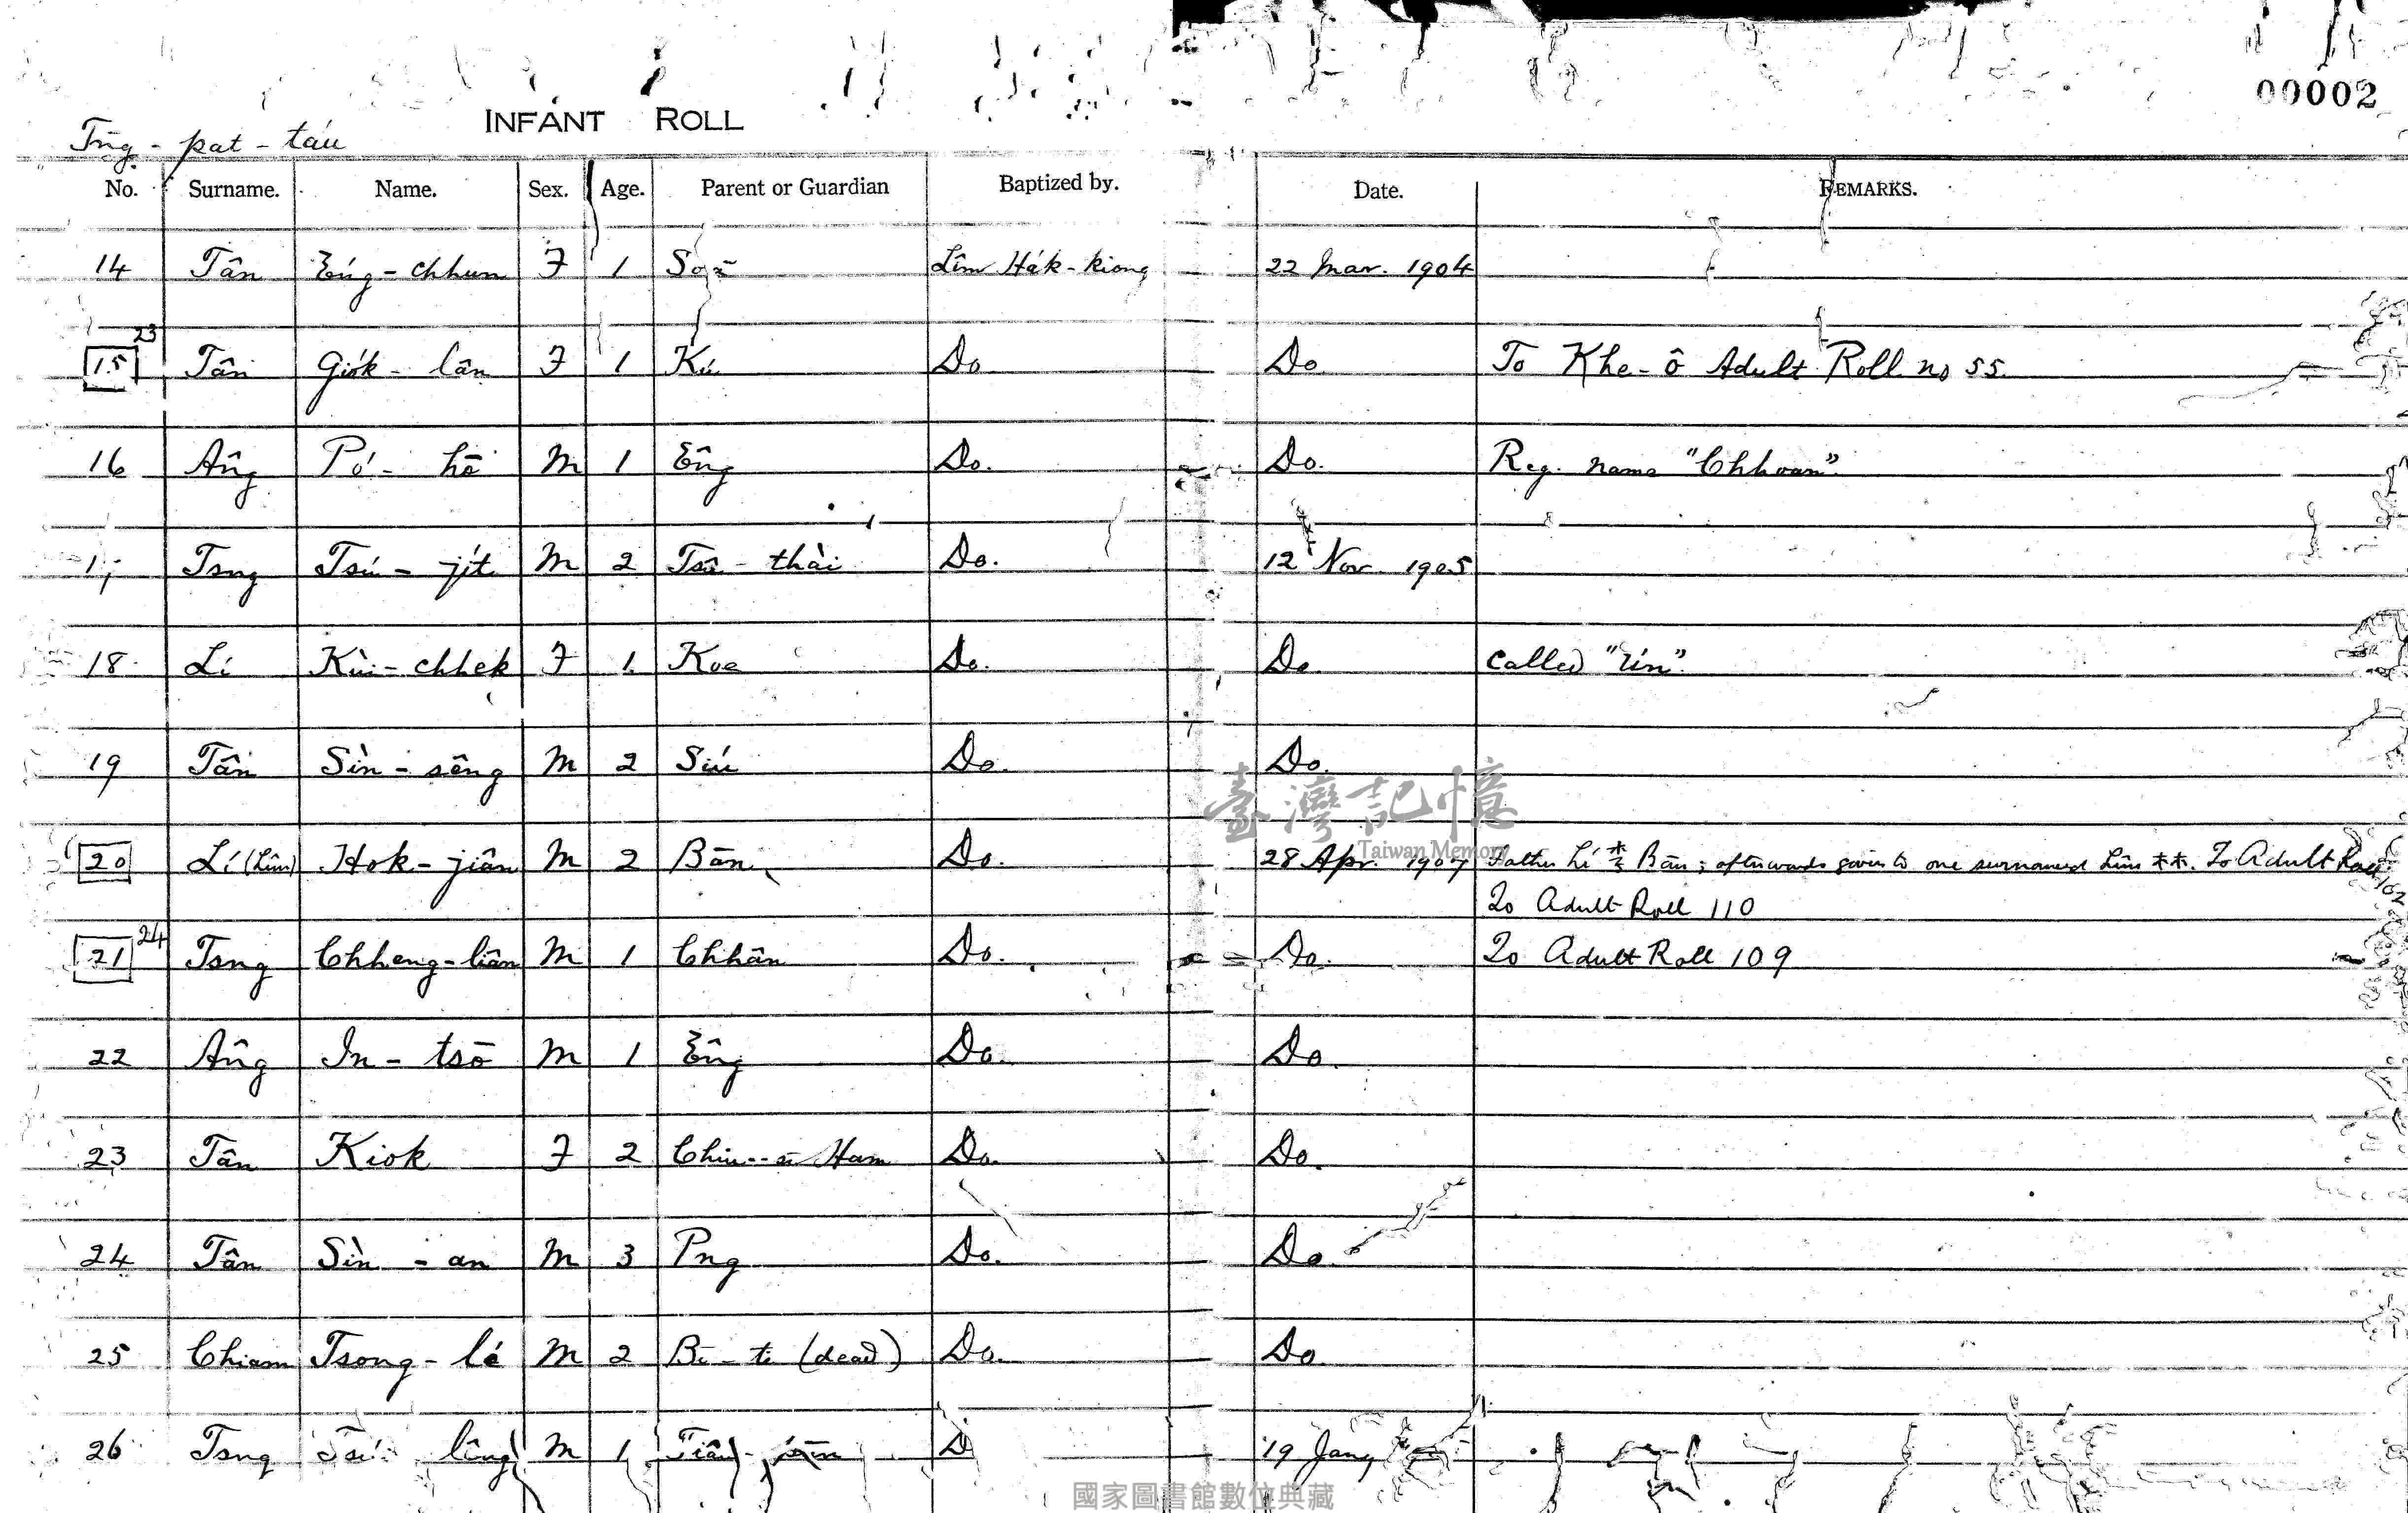 00002
INFANT ROLL
Tn̄g-pat-táu
No. Surname. Name. Sex. Age. Parent or Guardian Baptized by. Date. REMARKS.
14 Tân Éng-chhun F 1 Lîm Ha̍k-kiong 22 Mar. 1904
23
15 Tân Gio̍k-lân F 1 Kú Do Do To Khe-ô Adult Roll no 55.
16 Âng Pó-hô M 1 Êng Do. Do. Reg. name "Chhoan".
Tsng Tsú-ji̍t M 2 Tsâ-thài Do. 12 Nov. 1905
18 Lí Kùi-chhek F 1 Koe Do. Do Called "Ún".
19 Tân Sìn-sêng M 2 Siú Do. Do.
20 Lí (Lîm) Hok-jiân M 2 Bān Do. 28 Apr. 1907 Father Lí 李 Bān; afterwards given to one surnamed Lîm 林. To Adult Roll 102
To Adult Roll 110
24
21 Tsng Chheng-liân M 1 Chhân Do. Do. To Adult Roll 109
22 Âng In-tsō M 1 Êng Do. Do.
23 Tân Kiok F 2 Chiu--sī Ham Do. Do.
24 Tân Sìn-an M 3 Png Do. Do.
25 Chiam Tsong-lé M 2 Bī-tì (dead) Do. Do
26 Tsng lîng M 1 D 19 Jany
臺灣記憶
Taiwan Memory
國家圖書館數位典藏